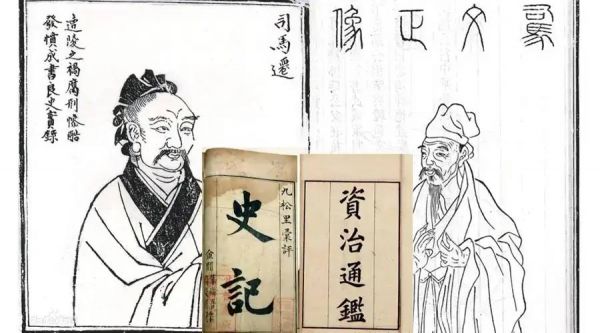 司馬遷
遭陵之禍腐刑慘酷
發憤成書良史實錄
馬文正像
九松里彙評
史記
資治通鑑